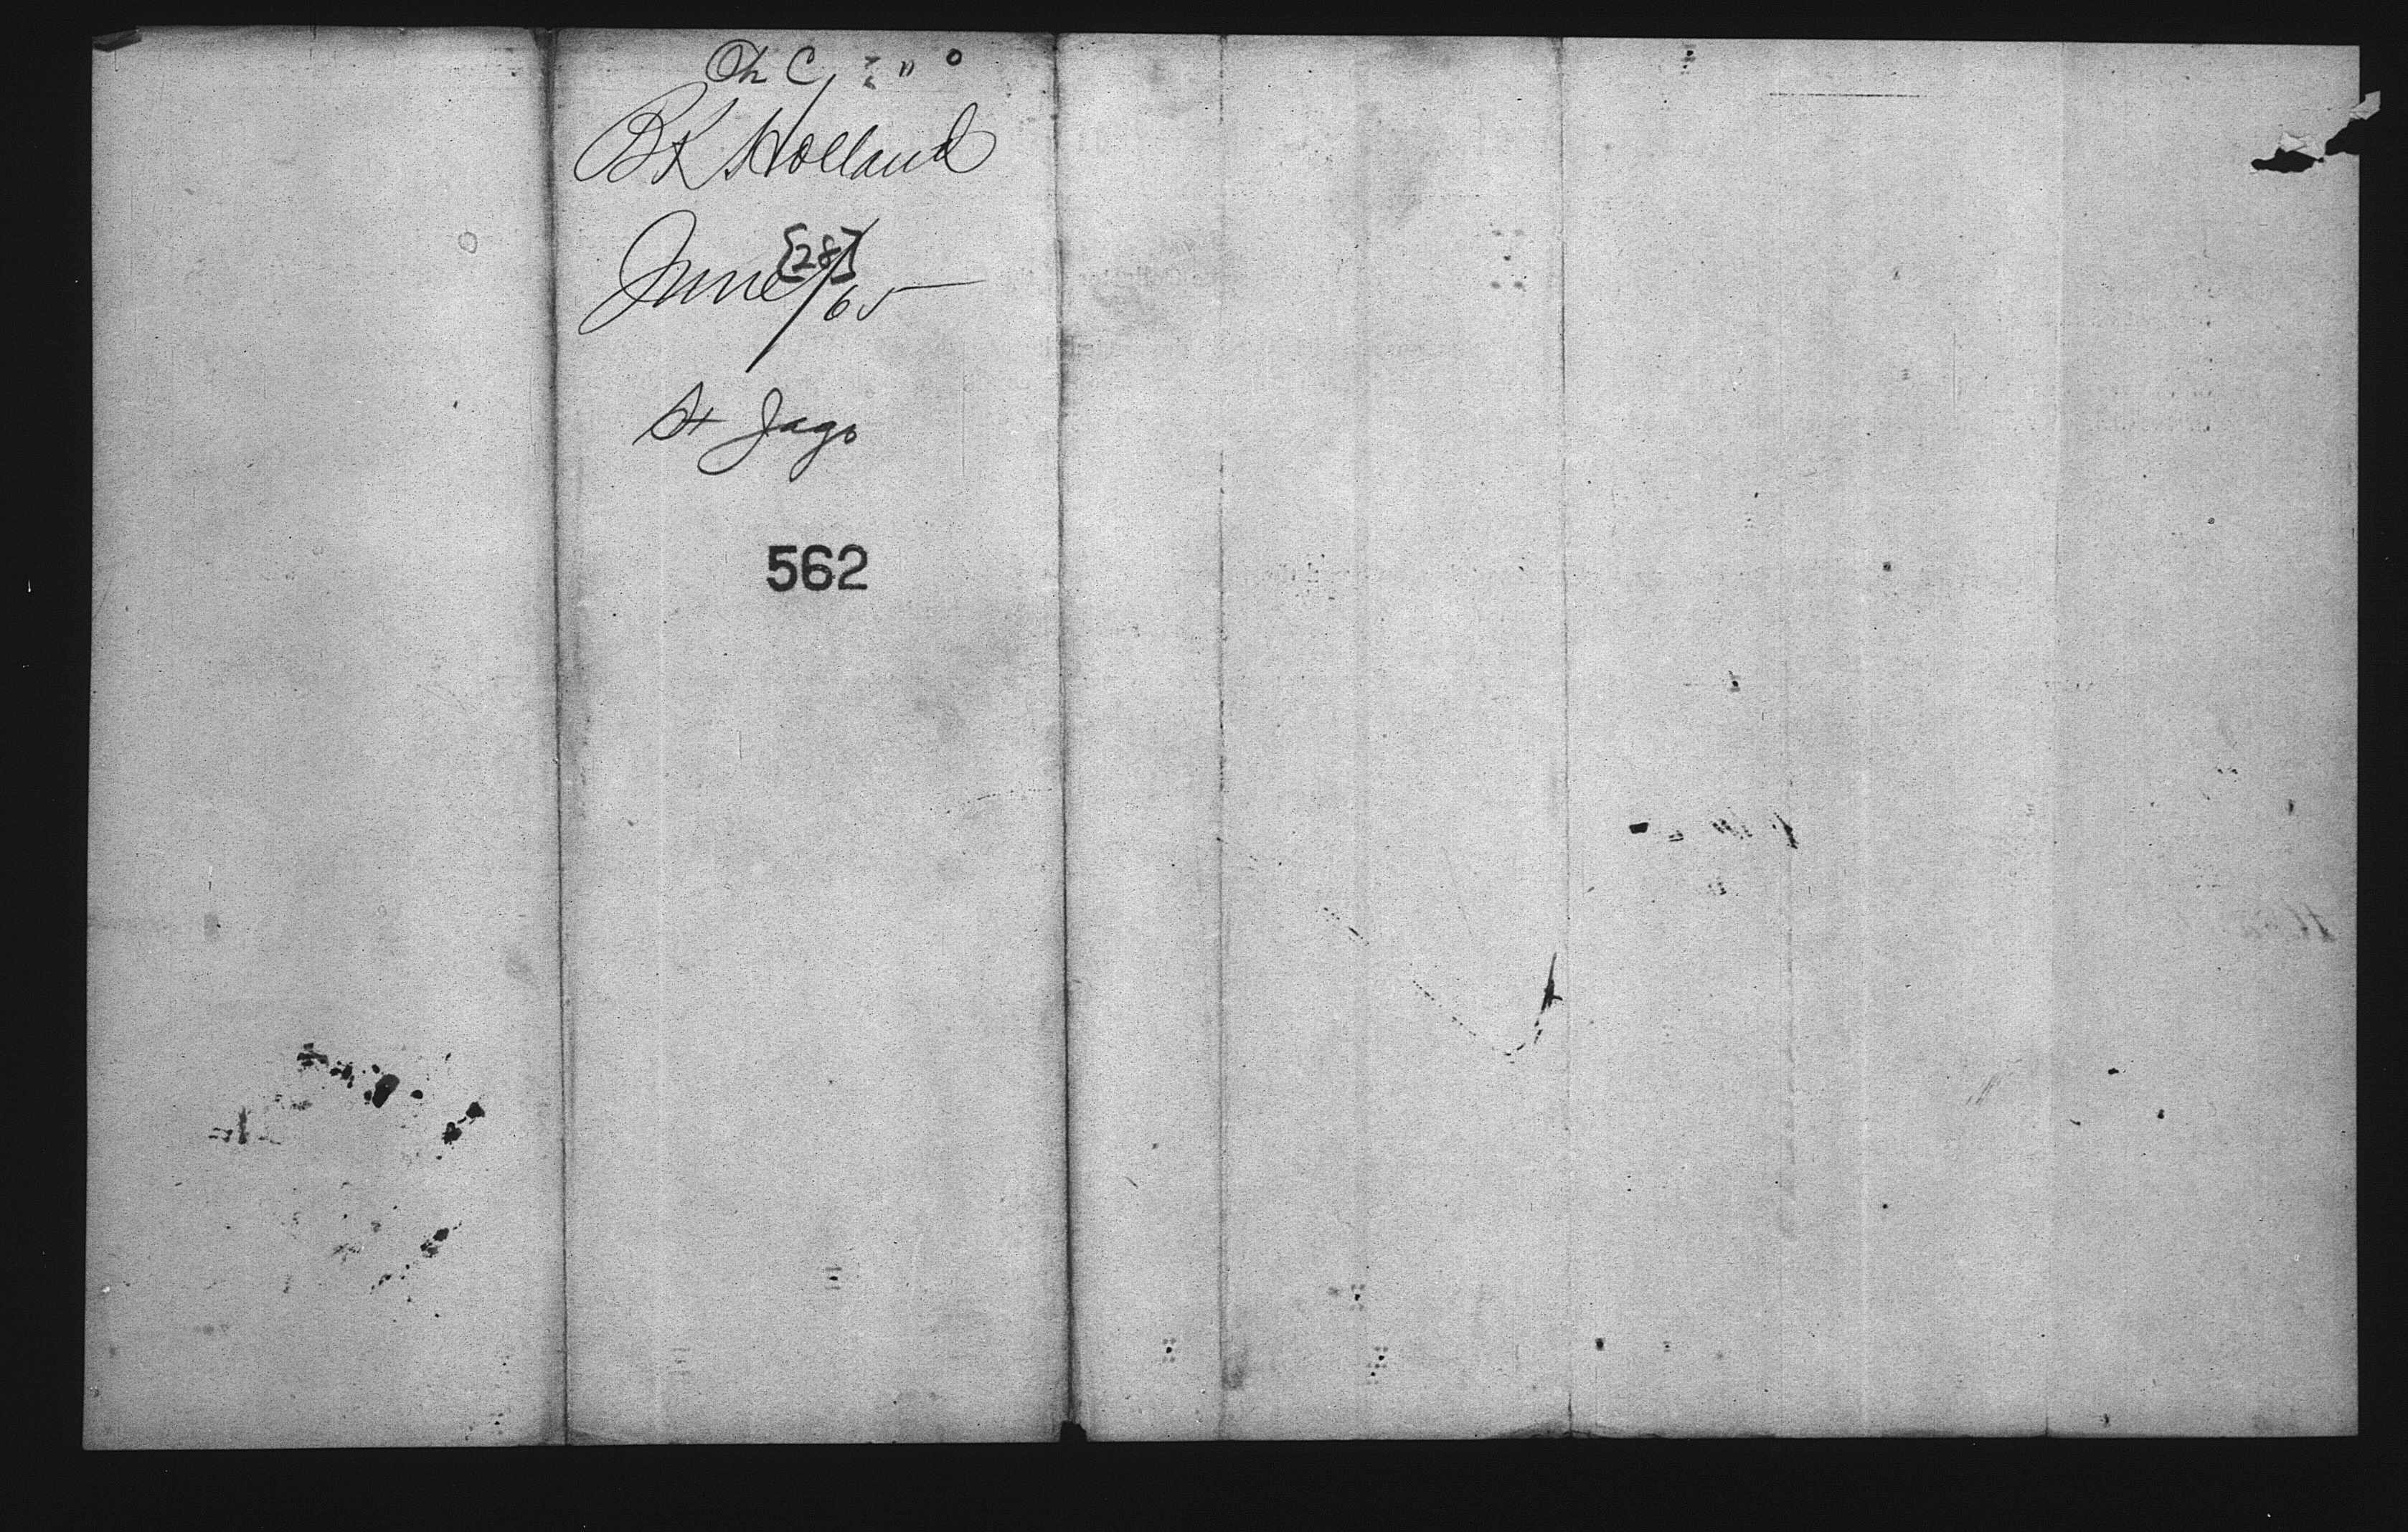 Ch C
BK Holland
June [28] /65
St Jago
562